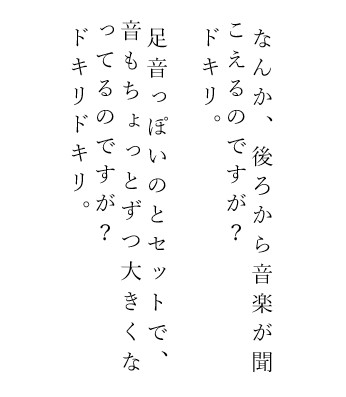 なんか、後ろから音楽が聞
こえるのですが？
ドキリ。
足音っぽいのとセットで、
音もちょっとずつ大きくな
ってるのですが？
ドキリドキリ。